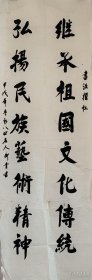 書法
繼承祖國文化傳統
弘揚民族藝術精神